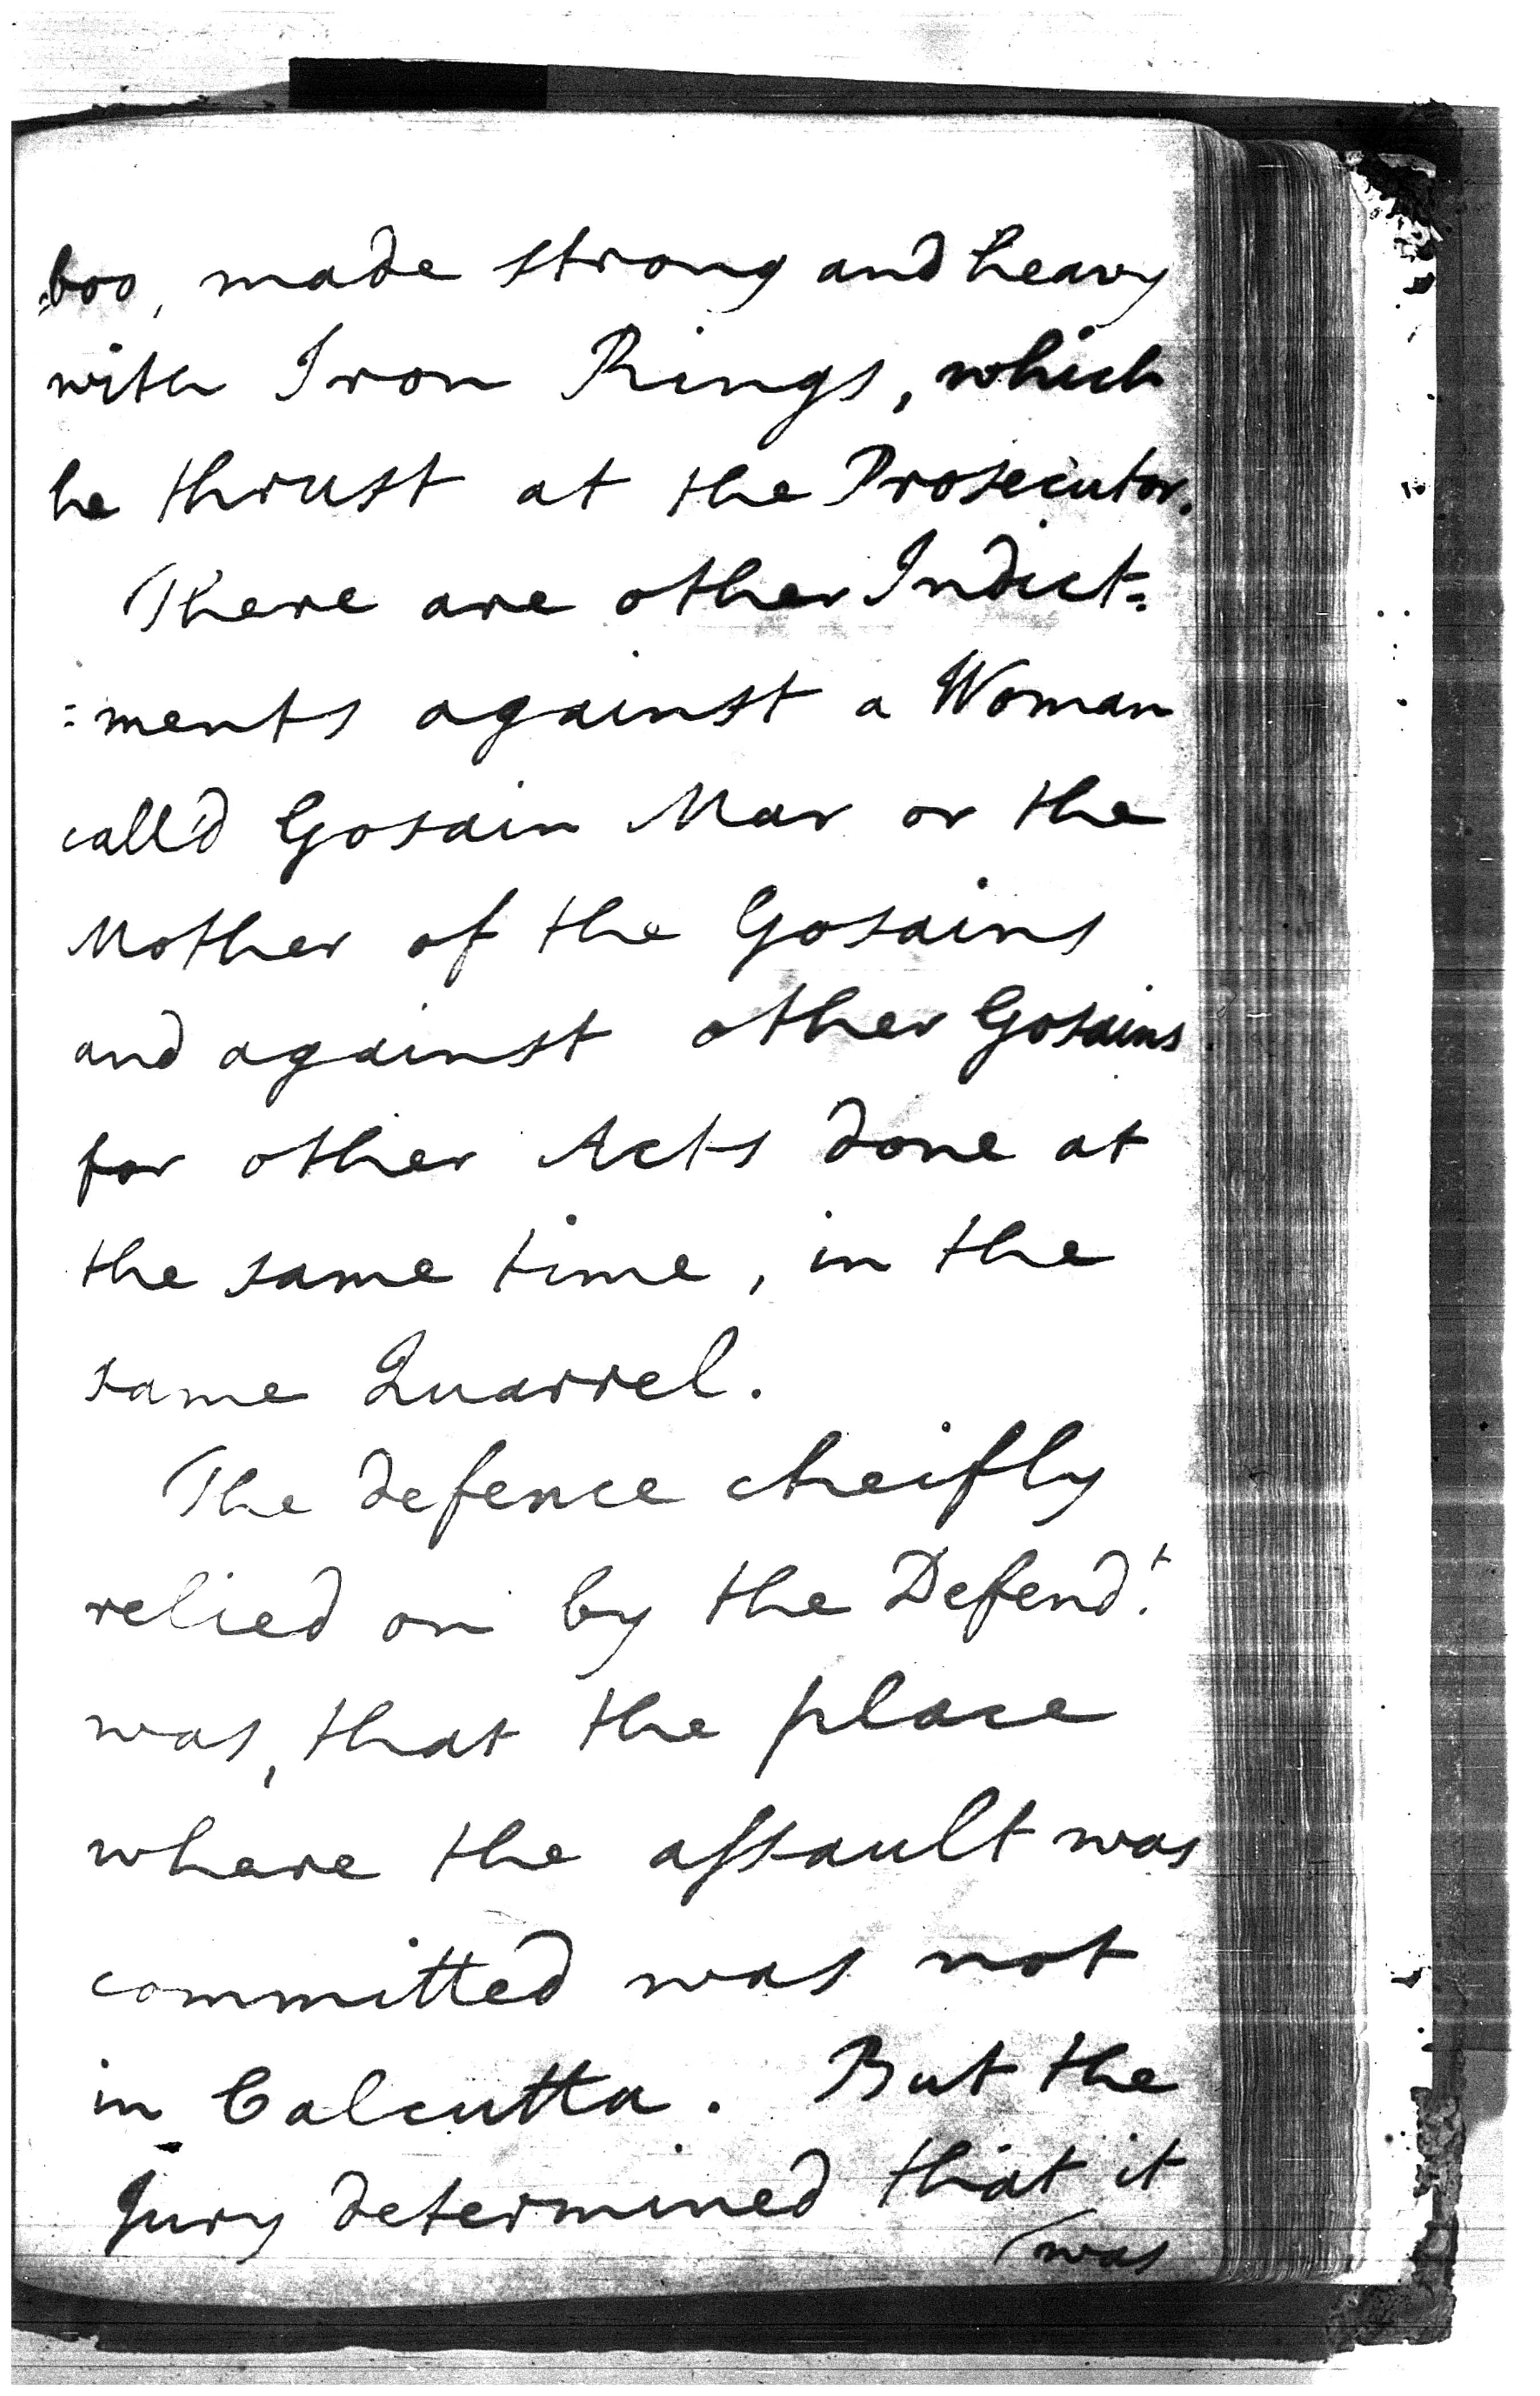 :boo, made strong and heavy
with Iron Rings, which
he thrust at the Prosecutor.
There are other Indict=
=ments against a Woman
call'd Gosain Mar or the
Mother of the Gosains
and against other Gosains
for other Acts done at
the same time, in the
same Quarrel.
The defence cheifly
relied on by the Defend.t
was, that the place
where the assault was
committed was not
in Calcutta. But the
Jury determined that it
was